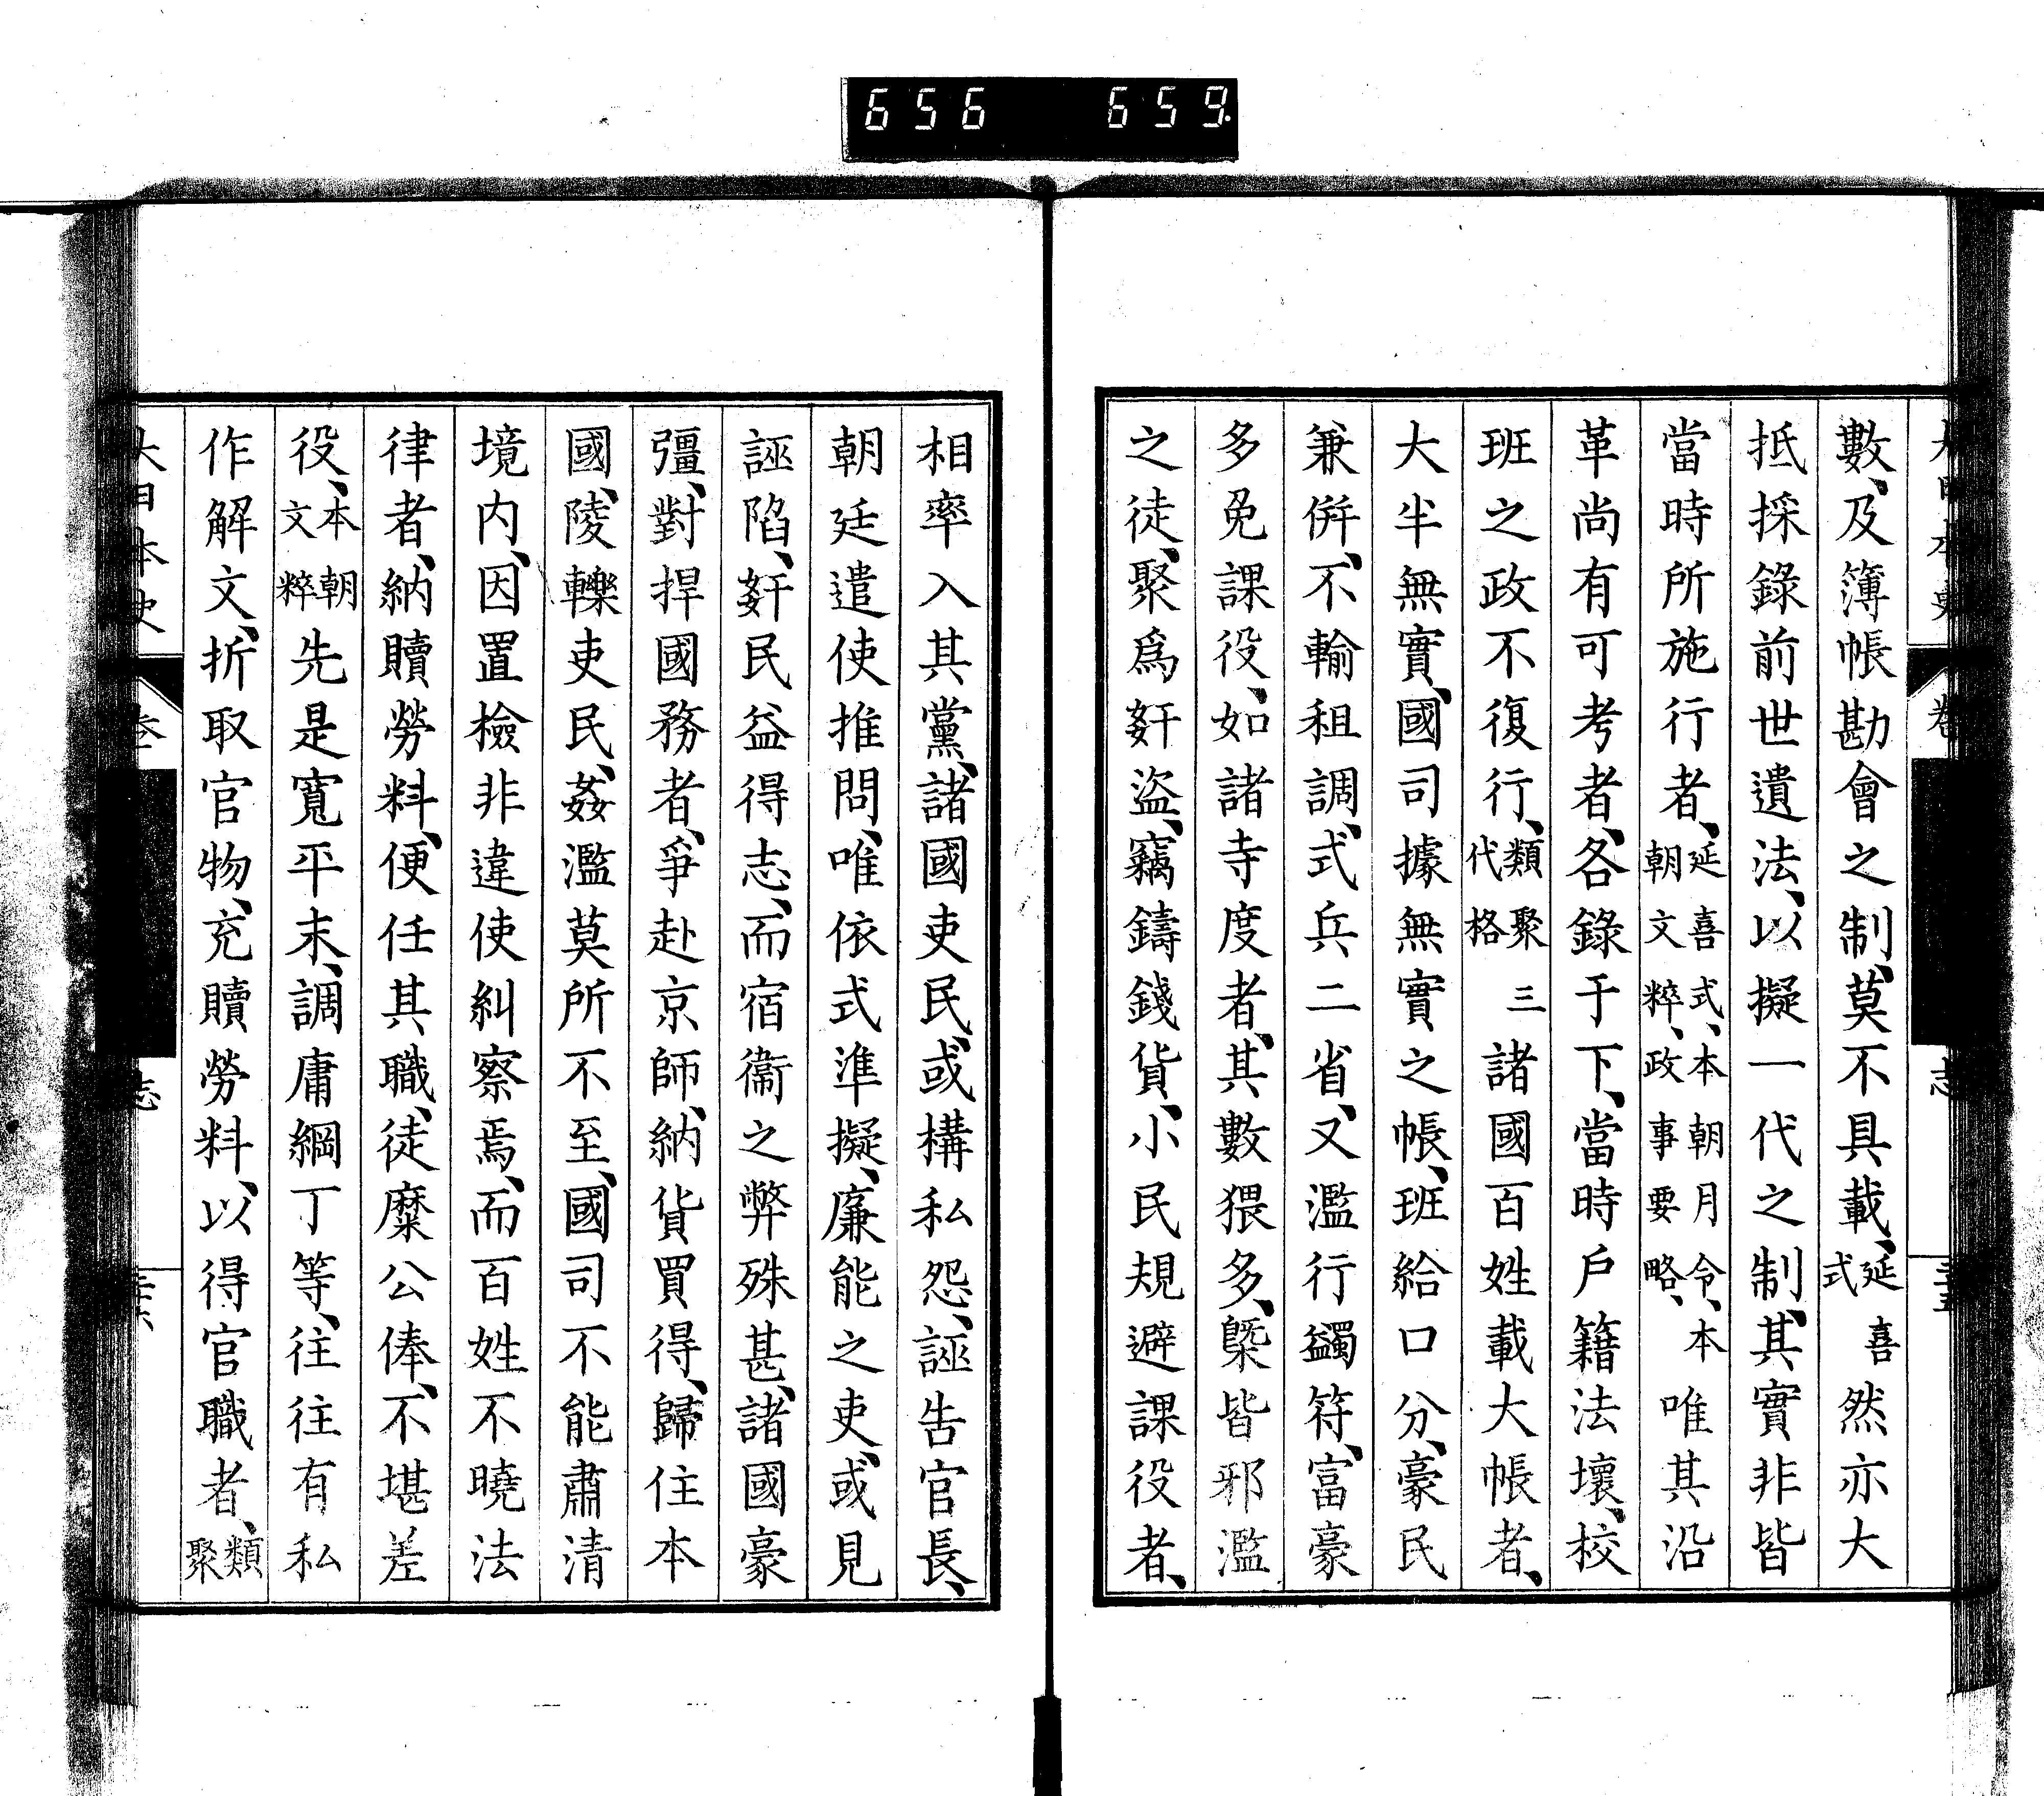 656 659
數、及簿帳勘會之制、莫不具載、延喜式然亦大
抵採錄前世遺法、以擬一代之制、其實非皆
當時所施行者、延喜式、本朝月令、本朝文粹、政事要略、唯其沿
革尚有可考者、各錄于下、當時戶籍法壞、校
班之政不復行、類聚三代格諸國百姓載大帳者、
大半無實、國司據無實之帳、班給口分、豪民
兼倂、不輸租調、式兵二省、又濫行蠲符、富豪
多免課役、如諸寺度者、其數猥多、槩皆邪濫
之徒、聚爲姧盜、竊鑄錢貨、小民規避課役者、
相率入其黨、諸國吏民、或構私怨、誣告官長、
朝廷遣使推問、唯依式準擬、廉能之吏、或見
誣陷、姧民益得志、而宿衞之弊殊甚、諸國豪
彊、對捍國務者、爭赴京師、納貨買得、歸住本
國、陵轢吏民、姦濫莫所不至、國司不能肅清
境内、因置檢非違使糾察焉、而百姓不曉法
律者、納贖勞料、便任其職、徒糜公俸、不堪差
役、本朝文粹先是寬平末、調庸綱丁等、往往有私
作解文、折取官物、充贖勞料、以得官職者、類聚
大日本史
志